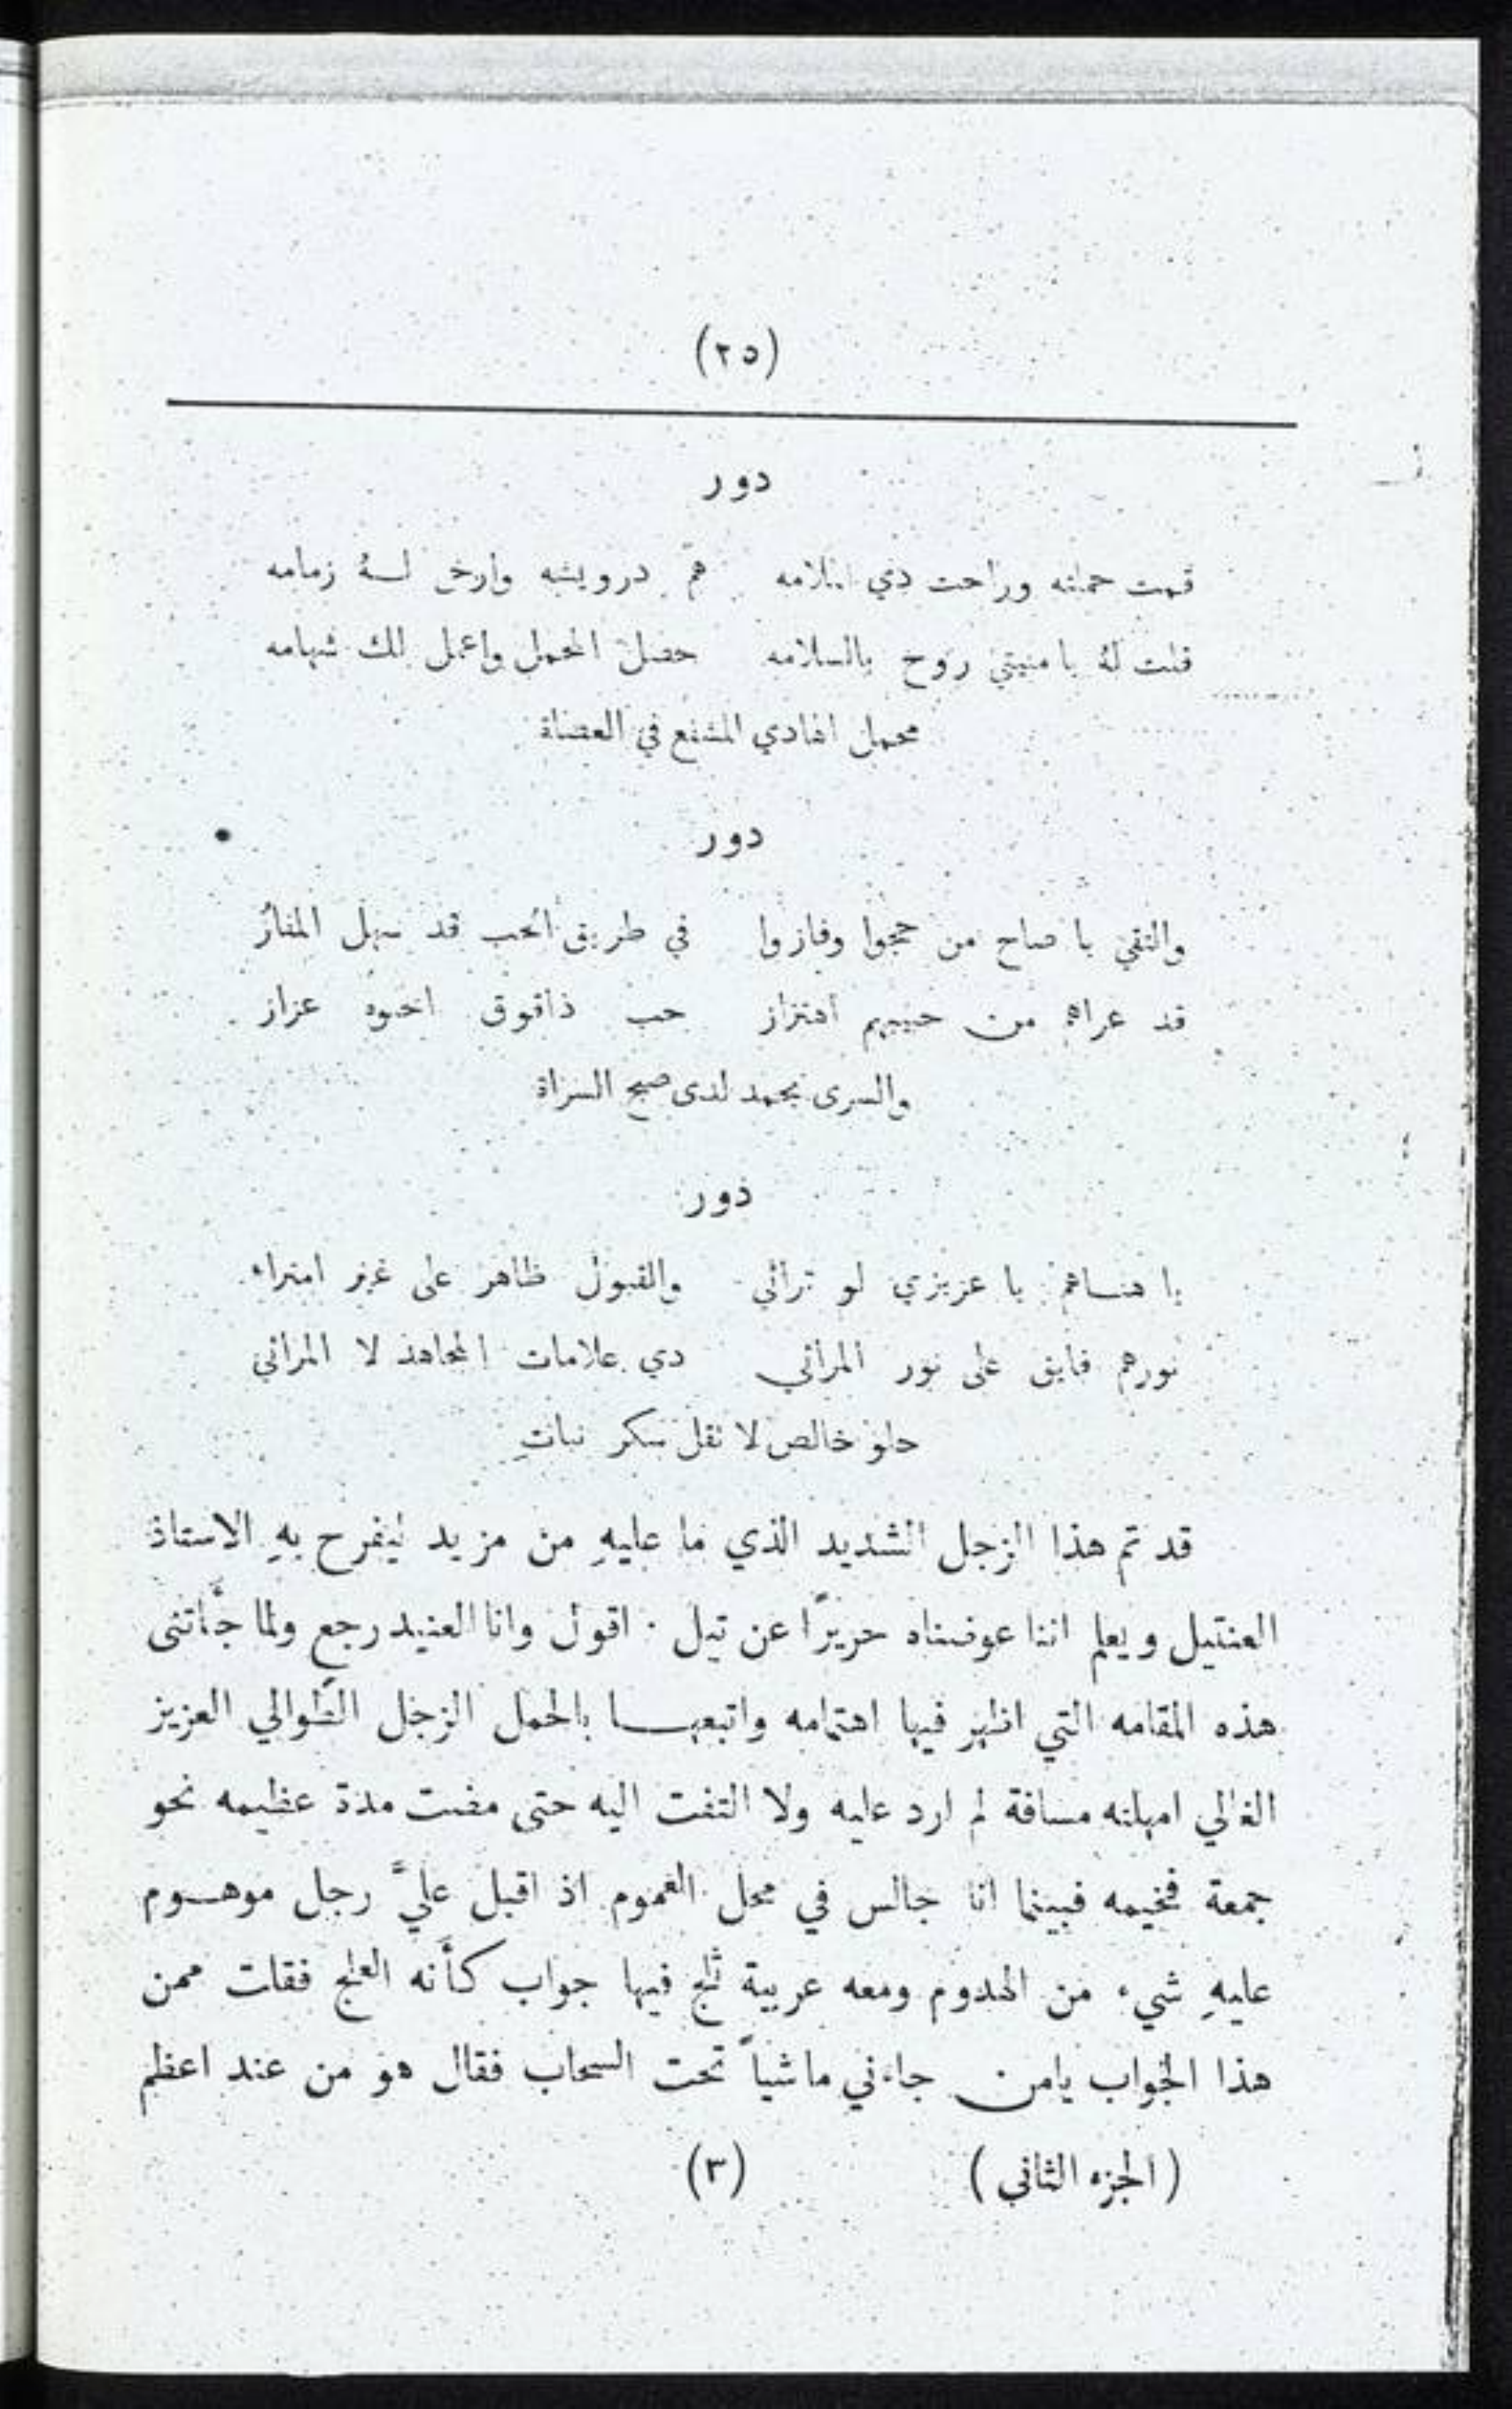 (٢٥)
دور
قمت حملته وراحت دي الملامه هم درويشه وارخى له زمامه
قلت له يا منيتي روح بالسلامه حصل المحمل واعمل لك شهامه
محمل الهادي المشفع في العصاة
دور
والتقي يا صاح من حجوا وفازوا في طريق الحب قد سهل المفاز
قد عراهم من حبيبهم اهتزاز حب ذاقوق اخوه عزاز
والسرى يحمد لدى صبح السراة
دور
يا هناهم يا عزيزي لو ترائي والقبول ظاهر على غير امتراء
نورهم فايق على نور المرائي دي علامات المجاهد لا المرائي
حلو خالص لا تقل سكر نباتِ
قد تم هذا الزجل الشديد الذي ما عليهِ من مزيد ليفرح بهِ الاستاذ
العنتيل ويعلم اننا عوضناه حريرًا عن تيل ٠ اقول وانا العنيد رجع ولما جأتنى
هذه المقامه التي اظهر فيها اهتمامه واتبعهـا بالحمل الزجل الطوالي العزيز
الغالي امهلته مسافة لم ارد عليه ولا التفت اليه حتى مضت مدة عظيمه نحو
جمعة فخيمه فبينما انا جالس في محل الغموم اذ اقبل عليَّ رجل موهـوم
عليهِ شيء من الهدوم ومعه عربية ثلج فيها جواب كأنه العلج فقلت ممن
هذا الجواب يامن جاءني ماشياً تحت السحاب فقال هو من عند اعظم
(الجزء الثاني) (٣)